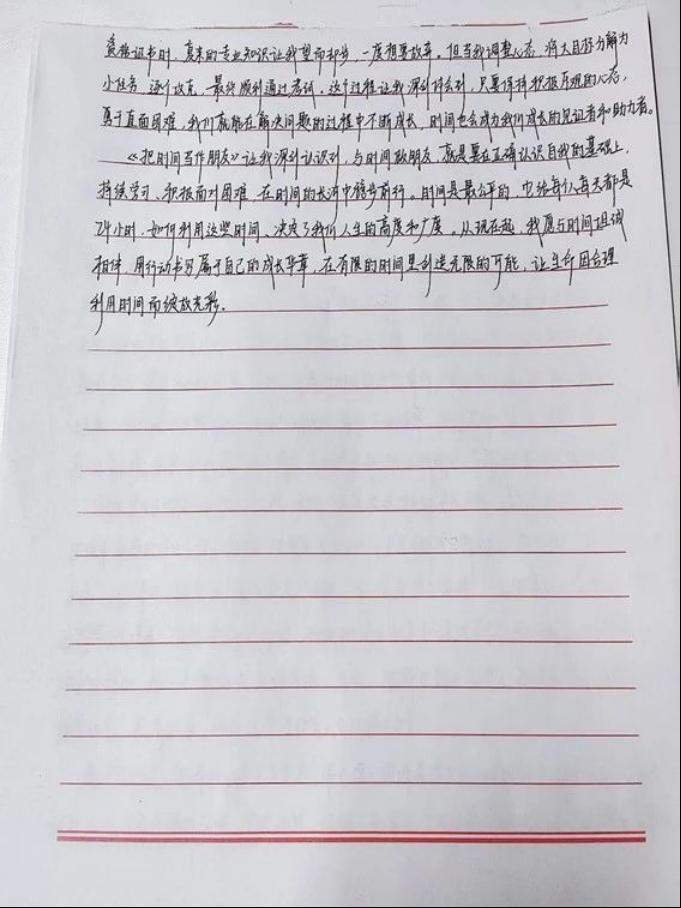 资格证书时，复杂的专业知识让我望而却步，一度想要放弃。但当我调整心态，将大目标分解为
小任务，逐个攻克，最终顺利通过考试。这个过程让我深刻体会到，只要保持积极乐观的心态，
勇于直面困难，我们就能在解决问题的过程中不断成长，时间也会成为我们成长的见证者和助力者。
《把时间当作朋友》让我深刻认识到，与时间做朋友，就是要在正确认识自我的基础上，
持续学习、积极面对困难，在时间的长河中稳步前行。时间是最公平的，它给每个人每天都是
24小时，如何利用这些时间，决定了我们人生的高度和广度。从现在起，我愿与时间坦诚
相伴，用行动书写属于自己的成长华章，在有限的时间里创造无限的可能，让生命因合理
利用时间而绽放光彩。